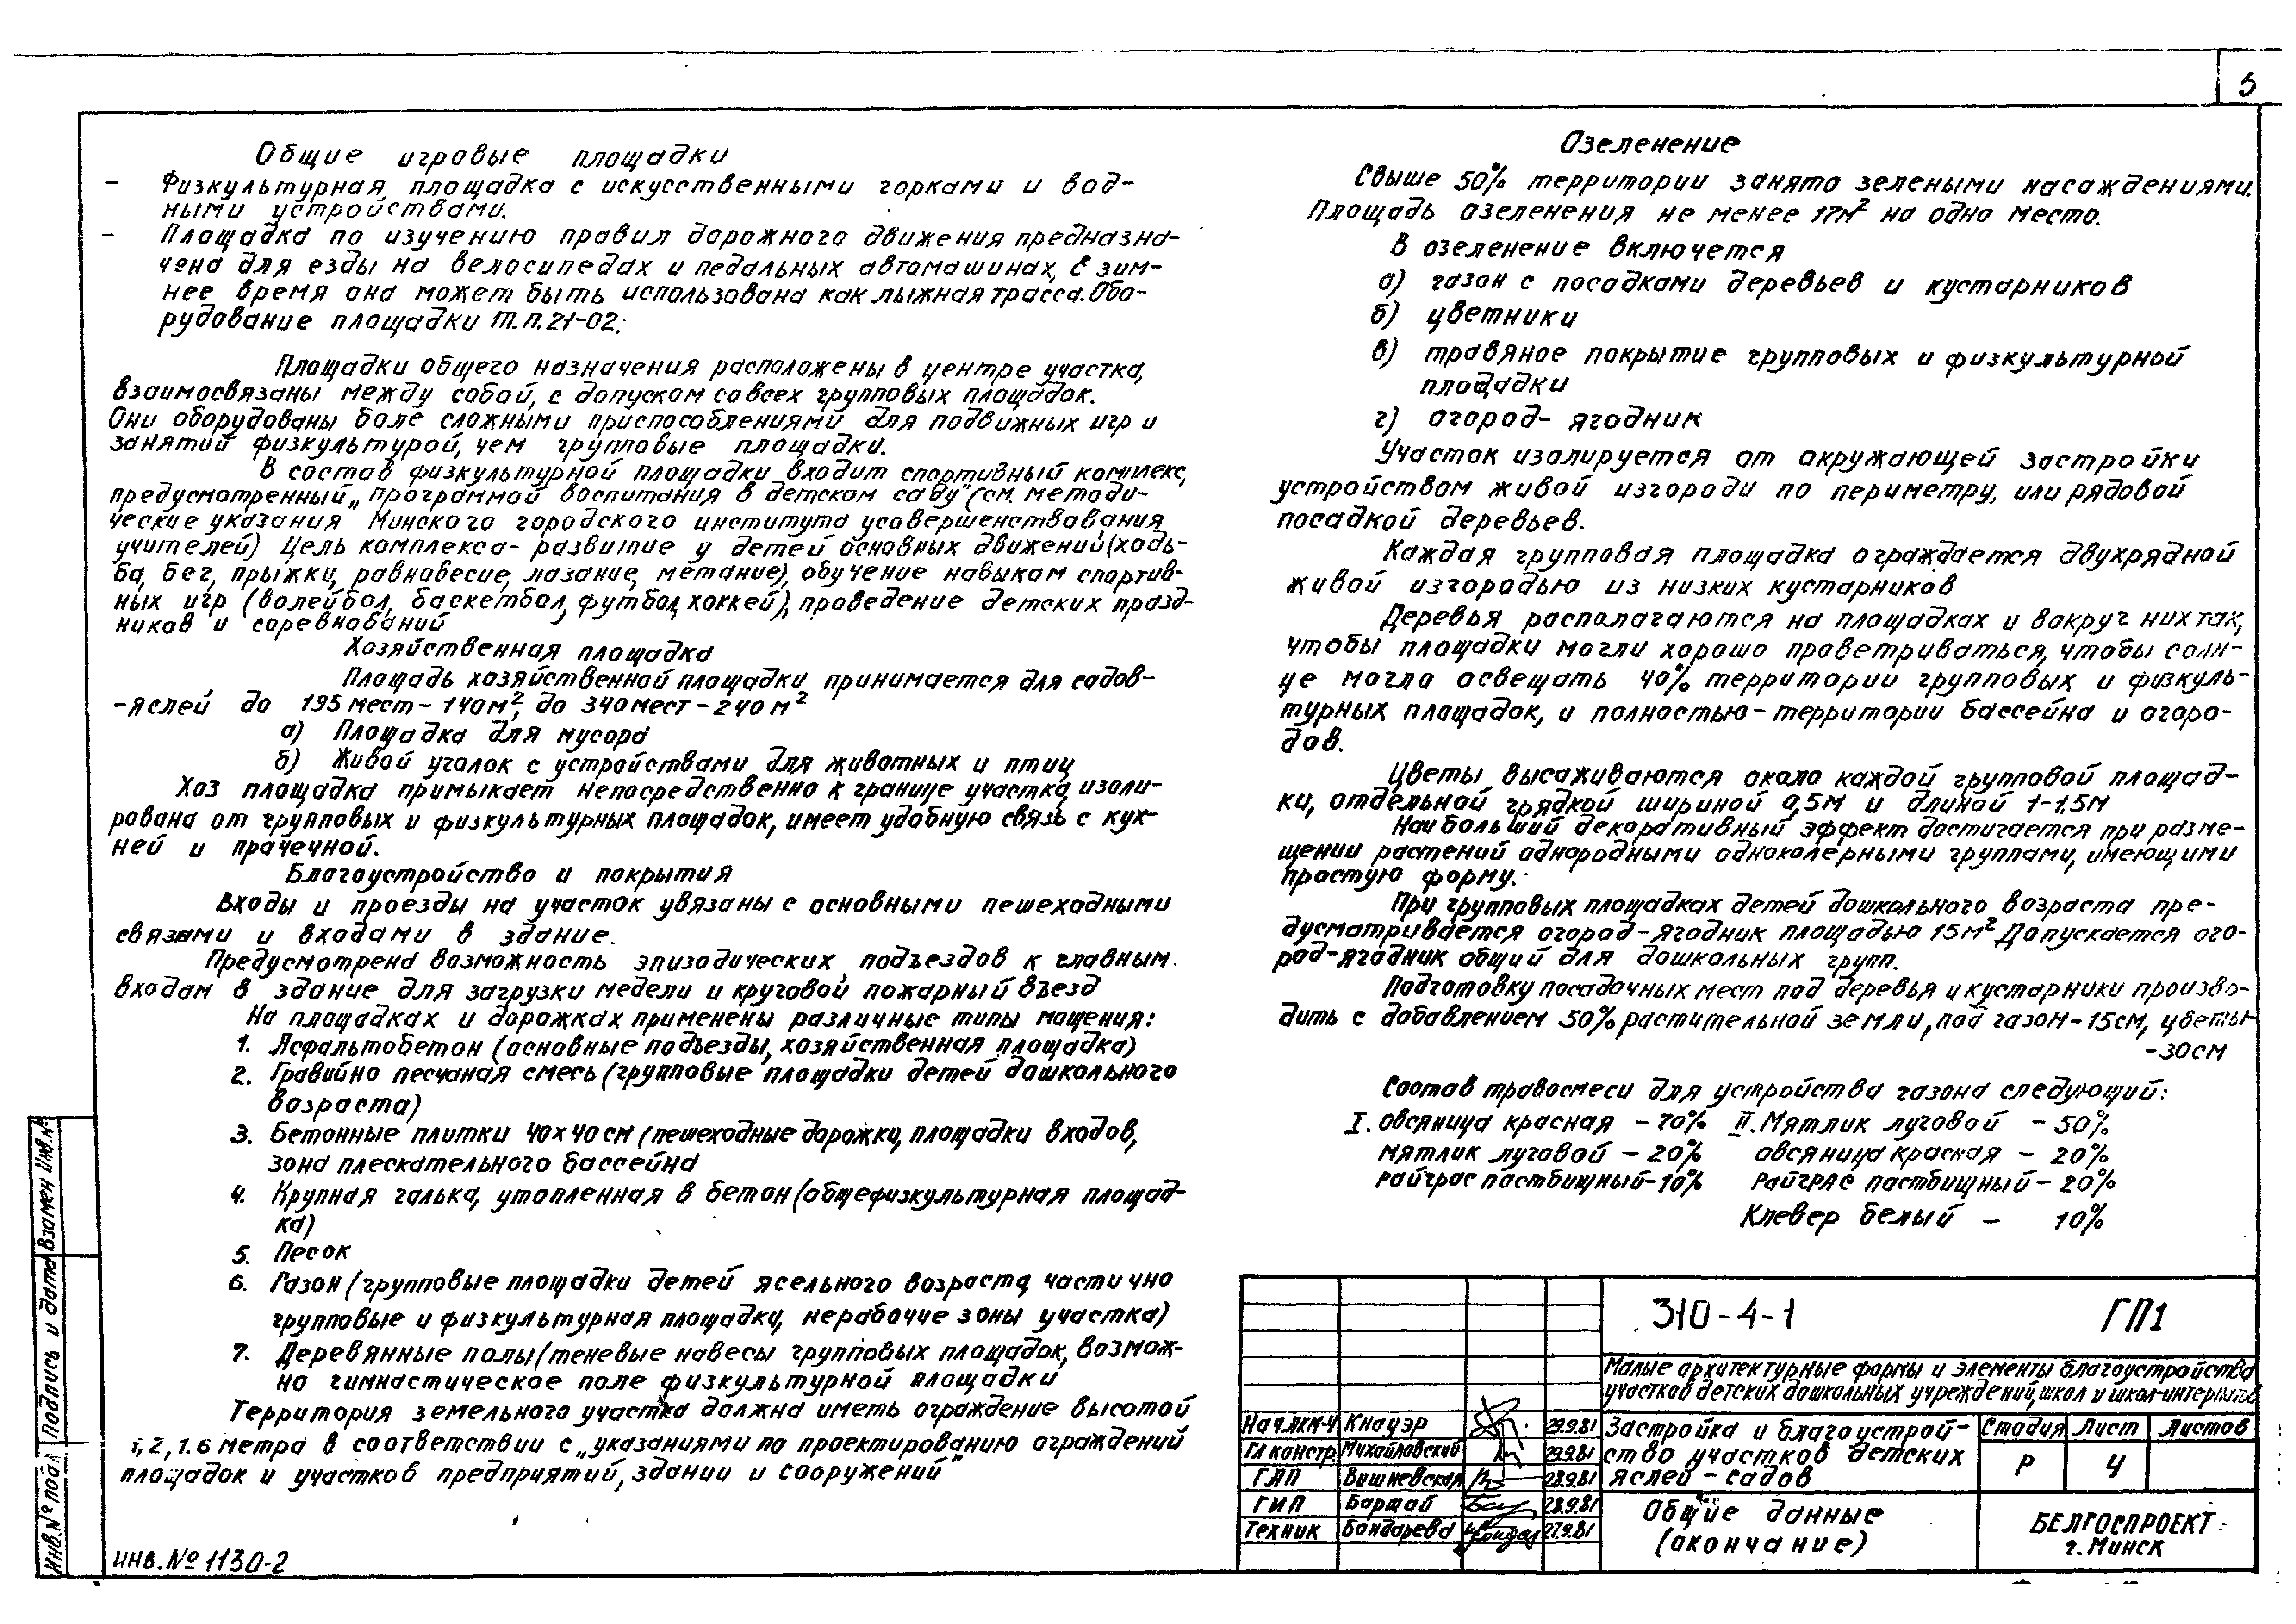 5
Общие игровые площадки
- Физкультурная площадка с искусственными горками и вод-
ными устройствами.
- Площадка по изучению правил дорожного движения предназна-
чена для езды на велосипедах и педальных автомашинах, в зим-
нее время она может быть использована как лыжная трасса. Обо-
рудование площадки т.п. 21-02;
Площадки общего назначения расположены в центре участка,
взаимосвязаны между собой, с допуском со всех групповых площадок.
Они оборудованы боле сложными приспособлениями для подвижных игр и
занятий физкультурой, чем групповые площадки.
В состав физкультурной площадки входит спортивный комплекс,
предусмотренный „программой воспитания в детском саду" (см. методи-
ческие указания Минского городского института усовершенствования
учителей) Цель комплекса - развитие у детей основных движений (ходь-
ба, бег, прыжки, равновесие, лазание, метание), обучение навыкам спортив-
ных игр (волейбол, баскетбол, футбол, хоккей), проведение детских празд-
ников и соревнований
Хозяйственная площадка
Площадь хозяйственной площадки принимается для садов-
-яслей до 195 мест - 140 м², до 340 мест - 240 м²
а) Площадка для мусора
б) Живой уголок с устройствами для животных и птиц
Хоз площадка примыкает непосредственно к границе участка, изоли-
рована от групповых и физкультурных площадок, имеет удобную связь с кух-
ней и прачечной.
Благоустройство и покрытия
Входы и проезды на участок увязаны с основными пешеходными
связями и входами в здание.
Предусмотрена возможность эпизодических подъездов к главным
входам в здание для загрузки медели и круговой пожарный въезд
На площадках и дорожках применены различные типы мощения:
1. Асфальтобетон (основные подъезды, хозяйственная площадка)
2. Гравийно песчаная смесь (групповые площадки детей дошкольного
возраста)
3. Бетонные плитки 40×40 см (пешеходные дорожки, площадки входов,
зона плескательного бассейна
4. Крупная галька, утопленная в бетон (общефизкультурная площад-
ка)
5. Песок
6. Газон (групповые площадки детей ясельного возраста, частично
групповые и физкультурная площадки, нерабочие зоны участка)
7. Деревянные полы (теневые навесы групповых площадок, возмож-
но гимнастическое поле физкультурной площадки
Территория земельного участка должна иметь ограждение высотой
1,2, 1.6 метра в соответствии с „указаниями по проектированию ограждений
площадок и участков предприятий, здании и сооружений"
Озеленение
Свыше 50% территории занято зелеными насаждениями.
Площадь озеленения не менее 17м² на одно место.
В озеленение включется
а) газон с посадками деревьев и кустарников
б) цветники
в) травяное покрытие групповых и физкультурной
площадки
г) огород- ягодник
Участок изолируется от окружающей застройки
устройством живой изгороди по периметру, или рядовой
посадкой деревьев.
Каждая групповая площадка ограждается двухрядной
живой изгородью из низких кустарников
Деревья располагаются на площадках и вокруг них так,
чтобы площадки могли хорошо проветриваться, чтобы солн-
це могло освещать 40% территории групповых и физкуль-
турных площадок, и полностью - территории бассейна и огоро-
дов.
Цветы высаживаются около каждой групповой площад-
ки, отдельной грядкой шириной 0,5м и длиной 1-1.5м
Наибольший декоративный эффект достигается при разме-
щении растений однородными одноколерными группами, имеющими
простую форму.
При групповых площадках детей дошкольного возраста пре-
дусматривается огород-ягодник площадью 15м². Допускается ого-
род-ягодник общий для дошкольных групп.
Подготовку посадочных мест под деревья и кустарники произво-
дить с добавлением 50% растительной земли, под газон - 15см, цветы-
-30см
Состав травосмеси для устройства газона следующий:
I. овсяница красная - 70% II. Мятлик луговой - 50%
мятлик луговой - 20% овсяница красная - 20%
райграс пастбищный - 10% райграс пастбищный - 20%
Клевер белый - 10%
310-4-1 ГП1
Малые архитектурные формы и элементы благоустройства
участков детских дошкольных учреждений, школ и школ-интернатов
Нач. ЛКМ-4 Кнауэр 29.9.81
Гл констр. Михайловский 29.9.81
ГАП Вишневская 28.9.81
ГИП Баршай 28.9.81
Техник Бондарева 27.9.81
Застройка и благоустрой-
ство участков детских
яслей - садов
Стадия Лист Листов
Р 4
Общие данные
(окончание)
БЕЛГОСПРОЕКТ
г. Минск
Взамен Инв.№
Подпись и дата
Инв.№ подл
инв. № 1130-2